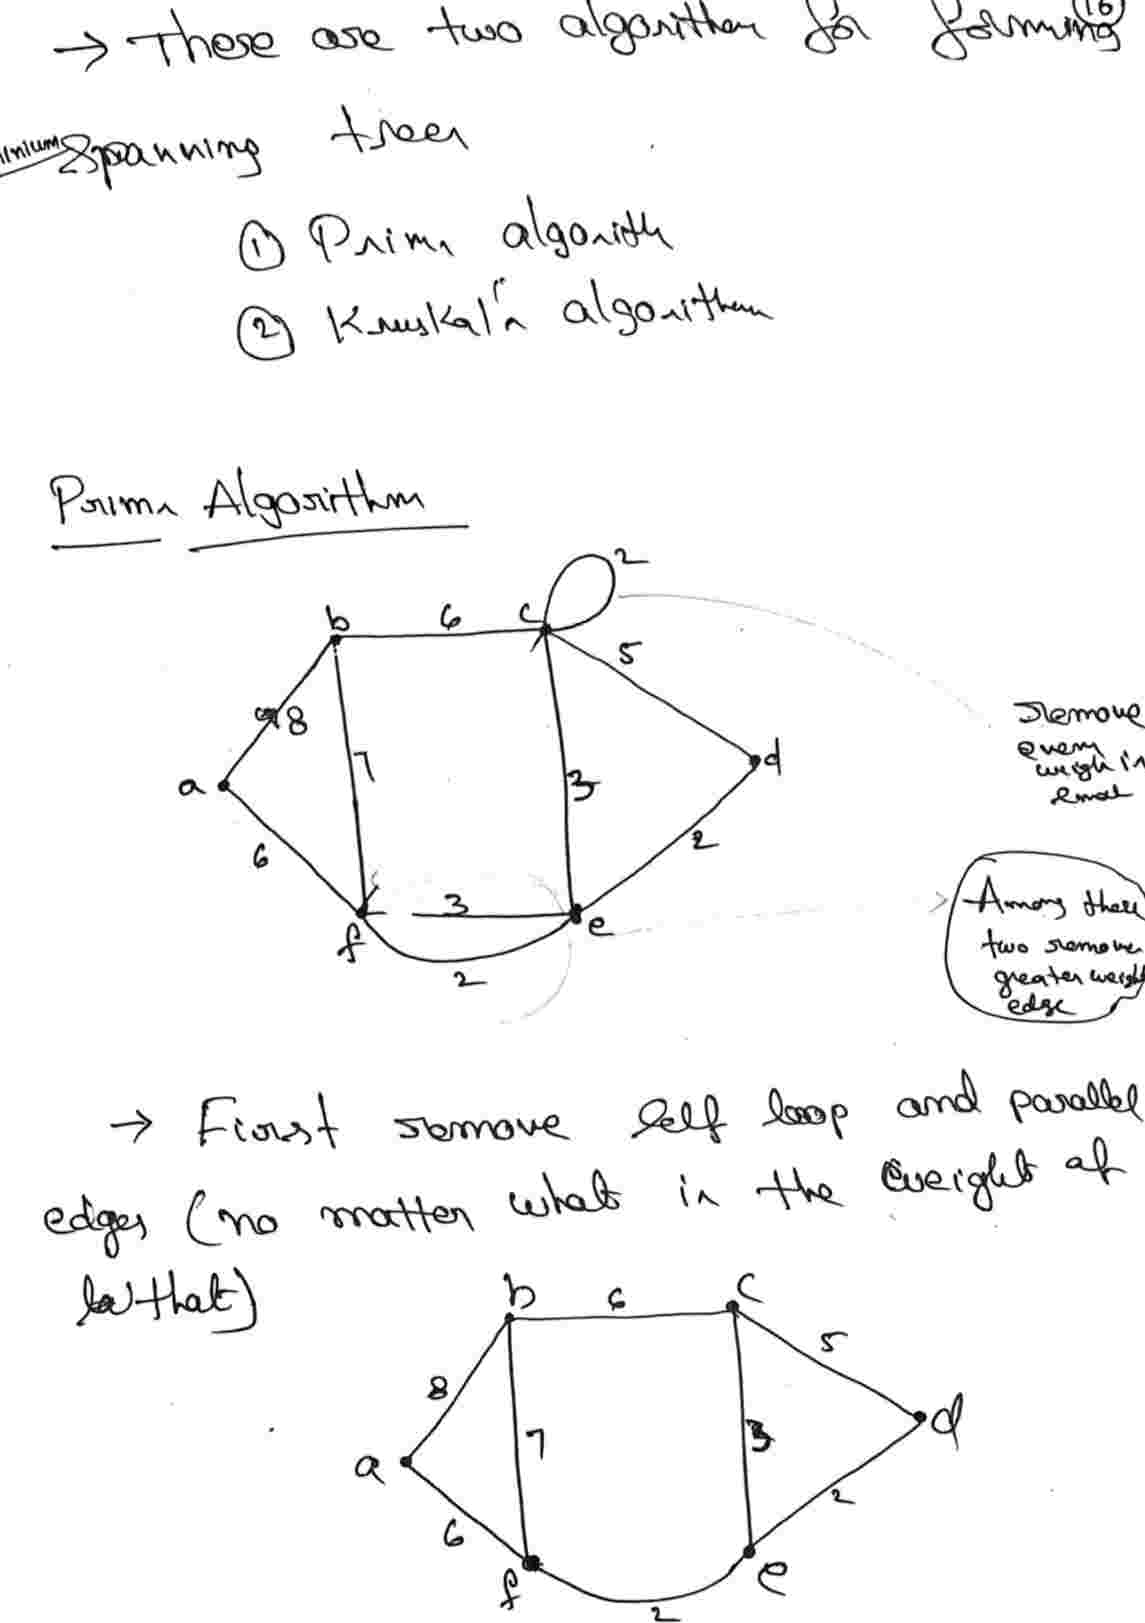 16
→ These are two algorithm for forming
Spanning trees
① Prims algorith
② Kruskal's algorithm
Prims Algorithm
2
b 6 c
5
8
7
a
3
d
6
2
3
f e
2
Remove
even
weigh is
Among these
two remove
greater weight
edge
→ First remove self loop and parallel
edges (no matter what is the weight of
that)
b 6 c
5
8
7
3
d
a
6
2
f e
2